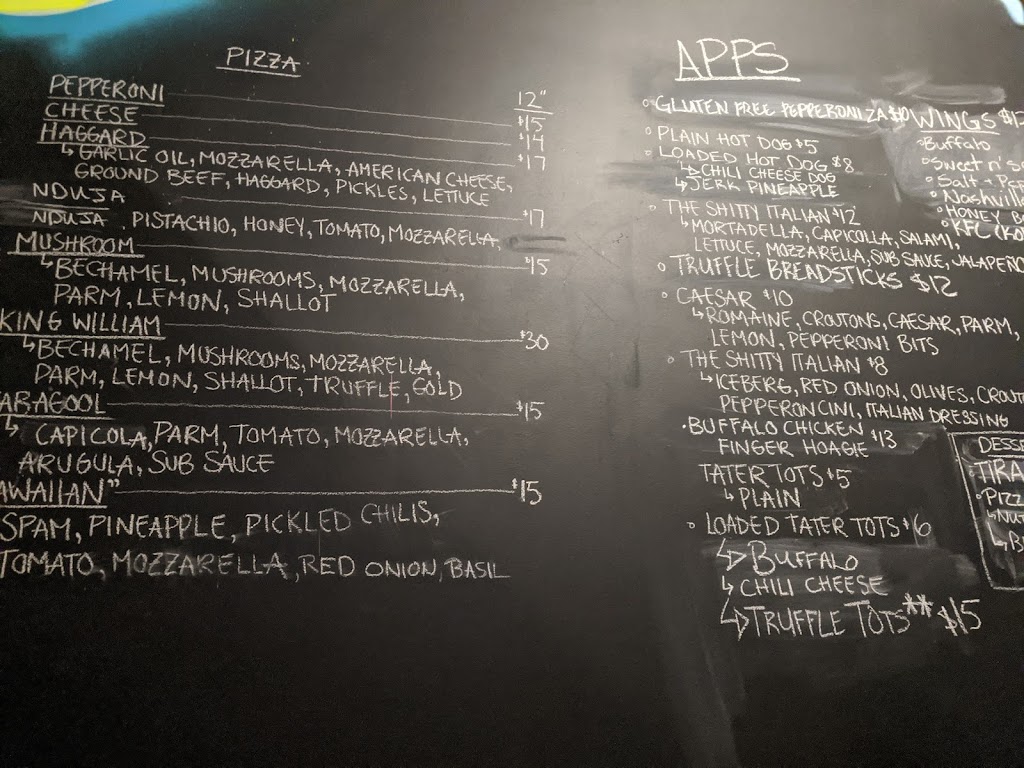 PIZZA
12"
PEPPERONI $15
CHEESE $14
HAGGARD $17
↳ GARLIC OIL, MOZZARELLA, AMERICAN CHEESE,
GROUND BEEF, HAGGARD, PICKLES, LETTUCE
NDUJA $17
NDUJA PISTACHIO, HONEY, TOMATO, MOZZARELLA,
MUSHROOM $15
↳ BECHAMEL, MUSHROOMS, MOZZARELLA,
PARM, LEMON, SHALLOT
KING WILLIAM $30
↳ BECHAMEL, MUSHROOMS, MOZZARELLA,
PARM, LEMON, SHALLOT, TRUFFLE, GOLD
ABAGOOL $15
↳ CAPICOLA, PARM, TOMATO, MOZZARELLA,
ARUGULA, SUB SAUCE
AWAIIAN" $15
SPAM, PINEAPPLE, PICKLED CHILIS,
TOMATO, MOZZARELLA, RED ONION, BASIL
APPS
◦ GLUTEN FREE PEPPERONI ZA $10
◦ PLAIN HOT DOG $5
◦ LOADED HOT DOG $8
↳ CHILI CHEESE DOG
↳ JERK PINEAPPLE
◦ THE SHITTY ITALIAN $12
↳ MORTADELLA, CAPICOLLA, SALAMI,
LETTUCE, MOZZARELLA, SUB SAUCE, JALAPEÑO
◦ TRUFFLE BREADSTICKS $12
◦ CAESAR $10
↳ ROMAINE, CROUTONS, CAESAR, PARM,
LEMON, PEPPERONI BITS
◦ THE SHITTY ITALIAN $8
↳ ICEBERG, RED ONION, OLIVES, CROUT
PEPPERONCINI, ITALIAN DRESSING
· BUFFALO CHICKEN $13
FINGER HOAGIE
TATER TOTS $5
↳ PLAIN
◦ LOADED TATER TOTS $6
↳ BUFFALO
↳ CHILI CHEESE
↳ TRUFFLE TOTS** $15
WINGS $12
◦ Buffalo
◦ Sweet n' So
◦ Salt - Pep
◦ Nashville
◦ HONEY B
◦ KFC (KO
DESSE
TIRA
◦ PIZZ
↳ NUT
↳ B